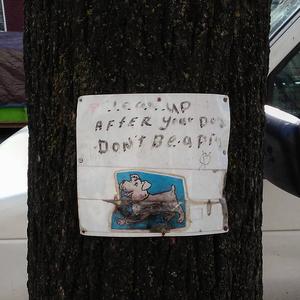 clean up
AFTER your Dog
DON'T Be a pig